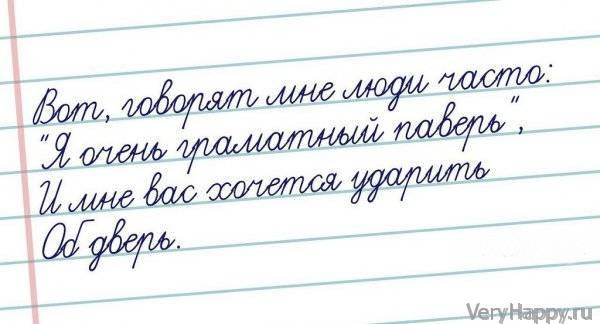 Вот, говорят мне люди часто:
"Я очень граматный паверь",
И мне вас хочется ударить
Об дверь.
VeryHappy.ru